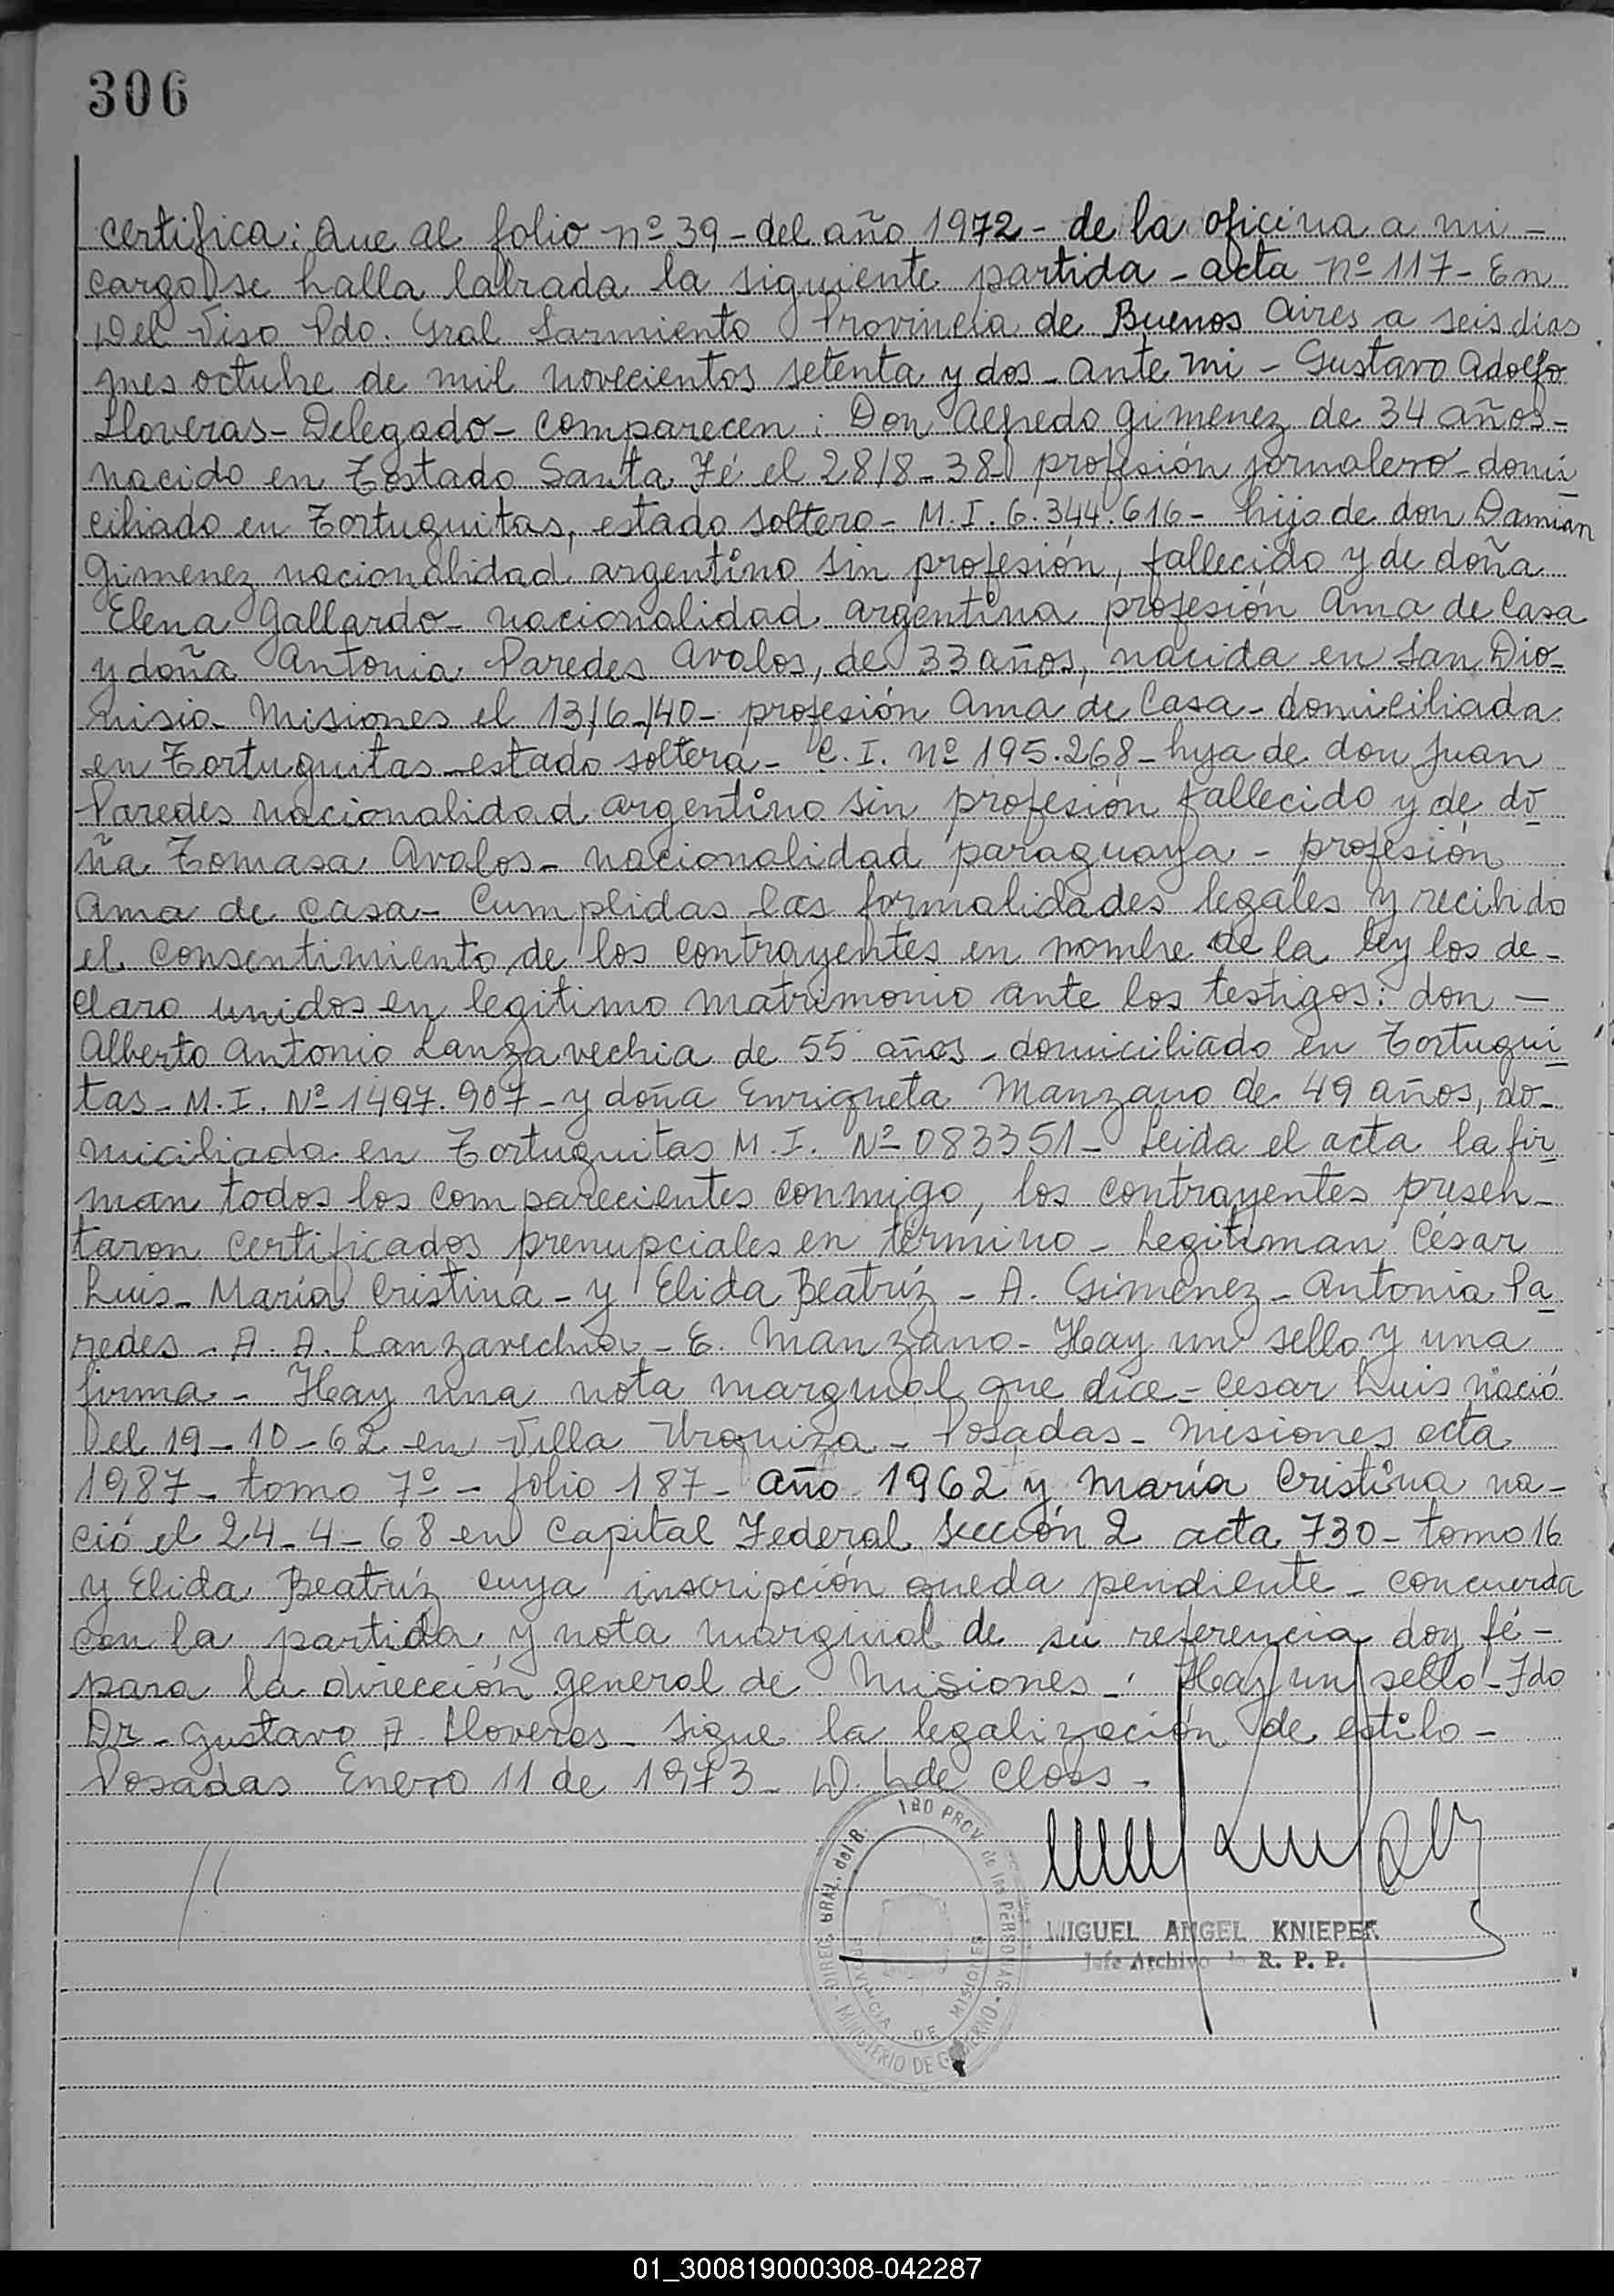 306
certifica: Que al folio nº 39 - del año 1972 - de la oficina a mi -
cargo se halla labrada la siguiente partida - acta nº 117 - En
Del Viso Pdo. Gral Sarmiento Provincia de Buenos Aires a seis dias
mes octubre de mil novecientos setenta y dos - ante mi - Gustavo Adolfo
Lloveras - Delegado - comparecen: Don Alfredo Gimenez de 34 años -
nacido en Tostado Santa Fé el 28/8-38 - profesión jornalero - domi
ciliado en Tortuguitas, estado soltero - M.I. 6.344.616 - hijo de don Damian
Gimenez nacionalidad argentino sin profesión, fallecido y de doña
Elena Gallardo - nacionalidad argentina profesión Ama de Casa
y doña Antonia Paredes Avalos, de 33 años, nacida en San Dio-
nisio - Misiones el 13/6-/40 - profesión Ama de Casa - domiciliada
en Tortuguitas - estado soltera - C.I. Nº 195.268 - hija de don Juan
Paredes nacionalidad argentino sin profesión fallecido y de do
ña Tomasa Avalos - nacionalidad paraguaya - profesión
Ama de casa - Cumplidas las formalidades legales y recibido
el consentimiento de los contrayentes en nombre de la ley los de-
claro unidos en legitimo matrimonio ante los testigos: don -
Alberto Antonio Lanzavechia de 55 años - domiciliado en Tortugui
tas - M.I. Nº 1497.907 - y doña Enriqueta Manzano de 49 años, do-
miciliada en Tortuguitas M.I. Nº 083351 - Leida el acta la fir
man todos los comparecientes conmigo, los contrayentes presen-
taron certificados prenupciales en término - Legitiman César
Luis - María Cristina - y Elida Beatríz - A. Gimenez - Antonia Pa
redes - A. A. Lanzavechia - E. Manzano - Hay un sello y una
firma - Hay una nota marginal que dice - Cesar Luis nació
el 19-10-62 en Villa Urquiza - Posadas - Misiones acta
1987 - tomo 7º - folio 187 - año 1962 y María Cristina na-
ció el 24-4-68 en Capital Federal Sección 2 acta 730 - tomo 16
y Elida Beatríz cuya inscripción queda pendiente - concuerda
con la partida y nota marginal de su referencia doy fé -
para la dirección general de Misiones - Hay un sello - Fdo
Dr - Gustavo A. Lloveras - Sigue la legalización de estilo -
Posadas Enero 11 de 1973 - D. L de Closs -
DIREC. GRAL. del R. PROV. de las PERSONAS
PROVINCIA DE MISIONES
MINISTERIO DE GOBIERNO
MIGUEL ANGEL KNIEPER
Jefe Archivo R. P. P.
01_300819000308-042287